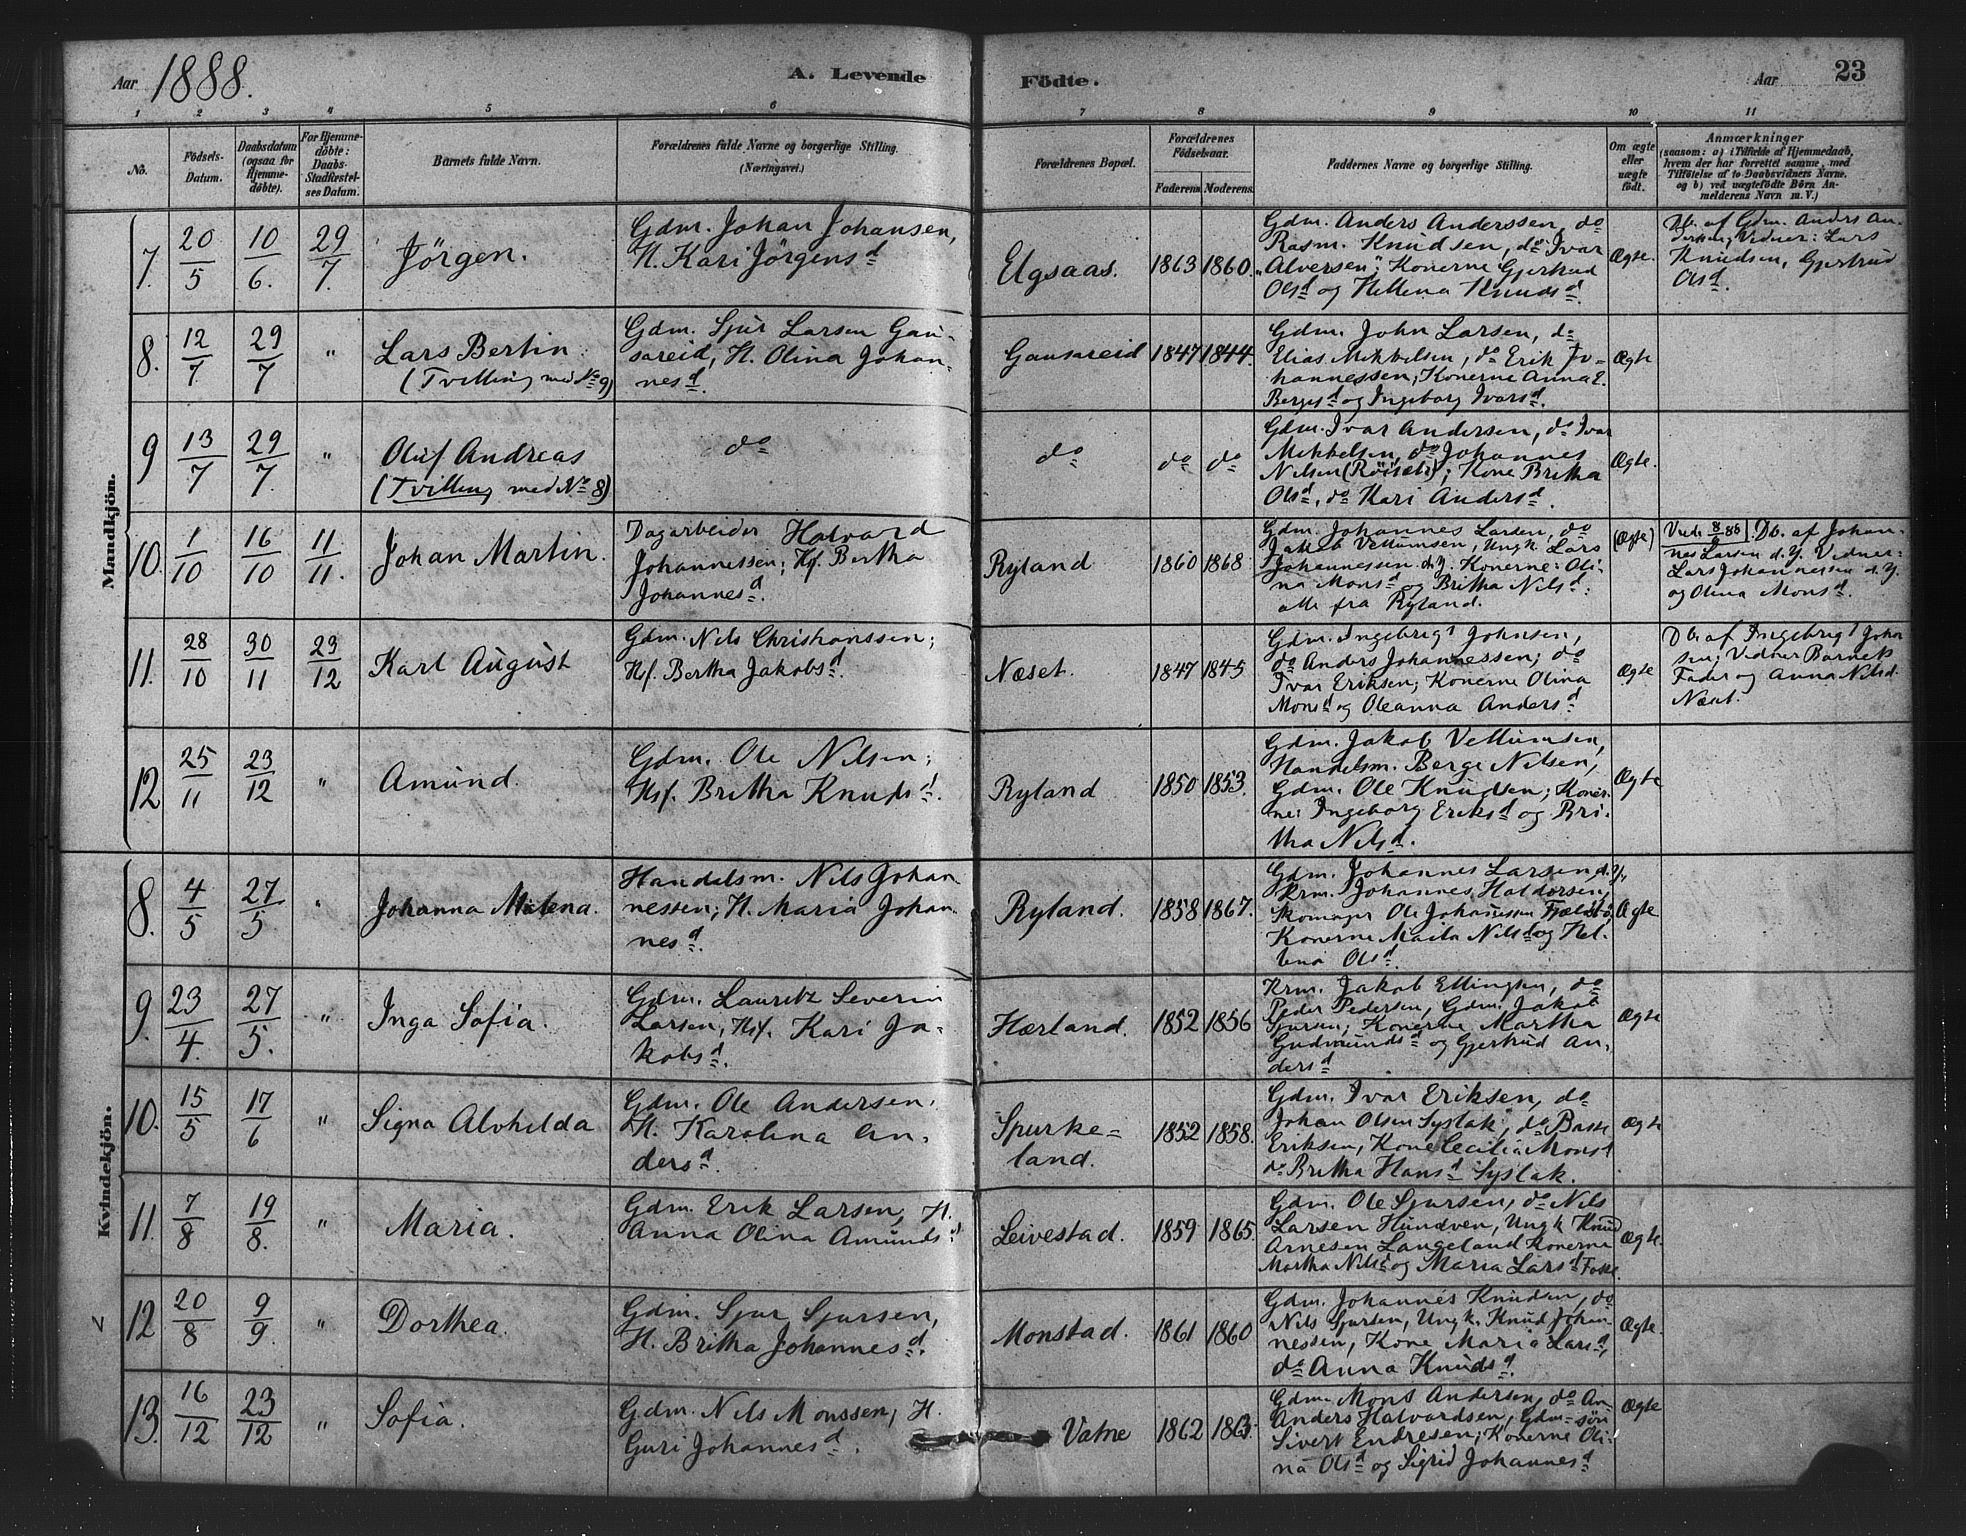 Aar 1888.
A. Levende Födte.
Aar 23
1 2 3 4 5 6 7 8 9 10 11
No.
Födsels-Datum.
Daabsdatum (ogsaa for Hjemme-döbte).
For Hjemme-döbte: Daabs-Stadfæstel-ses Datum.
Barnets fulde Navn.
Forældrenes fulde Navne og borgerlige Stilling. (Næringsvei.)
Forældrenes Bopæl.
Forældrenes Födselsaar.
Faderens. Moderens.
Faddernes Navne og borgerlige Stilling.
Om ægte eller uægte födt.
Anmærkninger
(saasom: a) i Tilfælde af Hjemmedaab,
hvem der har forrettet samme, med
Tilföielse af to Daabsvidners Navne,
og b) ved uægtefödte Börn An-
melderens Navn m. V.)
Mandkjön.
7. 20/5 10/6. 29/7. Jörgen.
Gdm. Johan Johansen,
H. Kari Jörgensd
Elgsaas. 1863 1860.
Gdm. Anders Anderssen, do
Rasm. Knudsen, do Ivar
Alversen; Konerne Gjertrud
Olsd og Hellena Knudsd.
Ægte.
Db. af Gdm. Anders An-
dersen, Vidner: Lars
Knudsen, Gjertrud
Olsd.
8. 12/7. 29/7 " Lars Bertin.
(Tvilling med No 9)
Gdm. Sjur Larsen Gau-
sareid, H. Olina Johan-
nesd.
Gausareid 1847 1844.
Gdm. John Larsen, do
Elias Mikkelsen, do Erik Jo-
hannessen; Konerne Anna E.
Bergesd og Ingeborg Ivarsd.
Ægte
9 13/7 29/7. " Oluf Andreas
(Tvilling med No 8)
do
do do do
Gdm. Ivar Andersen, do Ivar
Mikkelsen, do Johannes
Nilsen ; Kone Britha
Olsd, do Kari Andersd.
Ægte.
10. 1/10 16/10 11/11. Johan Martin.
Dagarbeider Halvard
Johannessen; Hf. Bertha
Johannesd.
Ryland 1860 1868.
Gdm. Johannes Larsen, do
Jakob Vellumsen, Ungk. Lars
Johannessen d.Y. Konerne: Oli-
na Monsd og Britha Nilsd:
alle fra Ryland.
(Ægte)
Db. af Johan-
nes Larsen d.Y. Vidner:
Lars Johannessen d.Y.
og Olina Monsd.
11. 28/10 30/11 23/12 Karl August
Gdm. Nils Christianssen;
Hsf. Bertha Jakobsd.
Næset. 1847 1845
Gdm. Ingebrigt Johnsen,
do Anders Johannessen; do
Ivar Eriksen; Konerne Olina
Monsd og Oleanna Andersd
Ægte
Db. af Ingebrigt John-
sen; Vidner Barnets
Fader og Anna Nilsd.
Næset.
12 25/11 23/12 " Amund.
Gdm. Ole Nilsen;
Hsf. Britha Knudsd.
Ryland 1850 1853.
Gdm. Jakob Vellumsen,
Handelsm. Berge Nilsen,
Gdm. Ole Knudsen; Koner-
ne: Ingeborg Eriksd og Bri-
tha Nilsd.
Ægte
Kvindekjön.
8. 4/5 27/5 " Johanna Malena.
Handelsm. Nils Johan-
nessen; H. Maria Johan-
nesd.
Ryland. 1858 1867.
Gdm. Johannes Larsen, d.Y,
Krm. Johannes Haldorsen,
Skomager Ole Johannessen
Konerne Nilsd og Hel-
lena Olsd
Ægte
9. 23/4. 27/5. " Inga Sofia.
Gdm. Lauritz Severin
Larsen, Hsf. Kari Ja-
kobsd.
Hærland. 1852 1856
Krm. Jakob Ellingsen, do
Peder Pedersen, Gdm. Jakob
Sjursen; Konerne Martha
Gudmundsd og Gjertrud An-
dersd
Ægte
10. 15/5 17/6 " Signa Alvhilda
Gdm. Ole Andersen,
H. Karolina An-
dersd.
Spurke=
land. 1852 1858.
Gdm. Ivar Eriksen, do
Johan Olsen Syslak, do
Eriksen, Kone Cecilia Monsd
do Britha Hansd Syslak.
Ægte
11. 7/8 19/8. " Maria.
Gdm. Erik Larsen, H.
Anna Olina Amundsd
Leivestad. 1859 1865.
Gdm. Ole Sjursen, do Nils
Larsen Hundven, Ungk Knud
Arnesen Langeland Konerne
Martha Nilsd og Maria Larsd Fosse.
Ægte.
12 20/8 9/9. " Dorthea.
Gdm. Sjur Sjursen,
H. Britha Johannesd.
Monstad. 1861 1860
Gdm. Johannes Knudsen, do
Nils Sjursen, Ungk. Knud Johan-
nessen, Kone Maria Larsd,
do Anna Knudsd.
Ægte.
13. 16/12 23/12 " Sofia.
Gdm. Nils Monssen, H.
Guri Johannesd.
Vatne 1862 1863.
Gdm. Mons Andersen, do An-
Anders Halvardsen, Gdm-sön
Sivert Endresen; Konerne Oli-
na Olsd og Sigrid Johannesd
Ægte